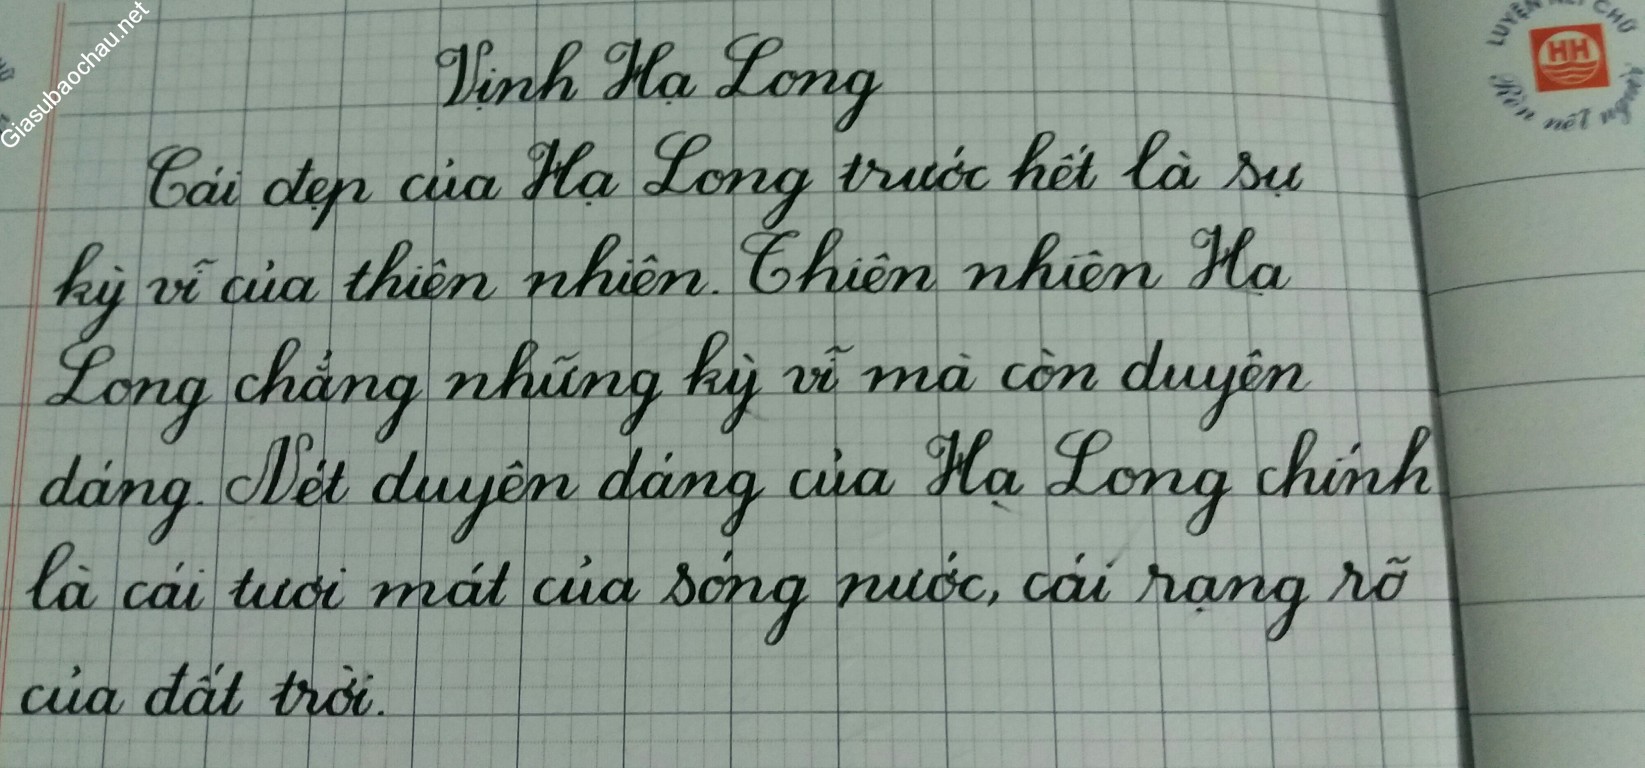 Giasubaochau.net
LUYỆN NÉT CHỮ
HH
Rèn nết người
Vịnh Hạ Long
Cái đẹp của Hạ Long trước hết là sự
kỳ vĩ của thiên nhiên. Thiên nhiên Hạ
Long chẳng những kỳ vĩ mà còn duyên
dáng. Nét duyên dáng của Hạ Long chính
là cái tươi mát của sóng nước, cái rạng rỡ
của đất trời.